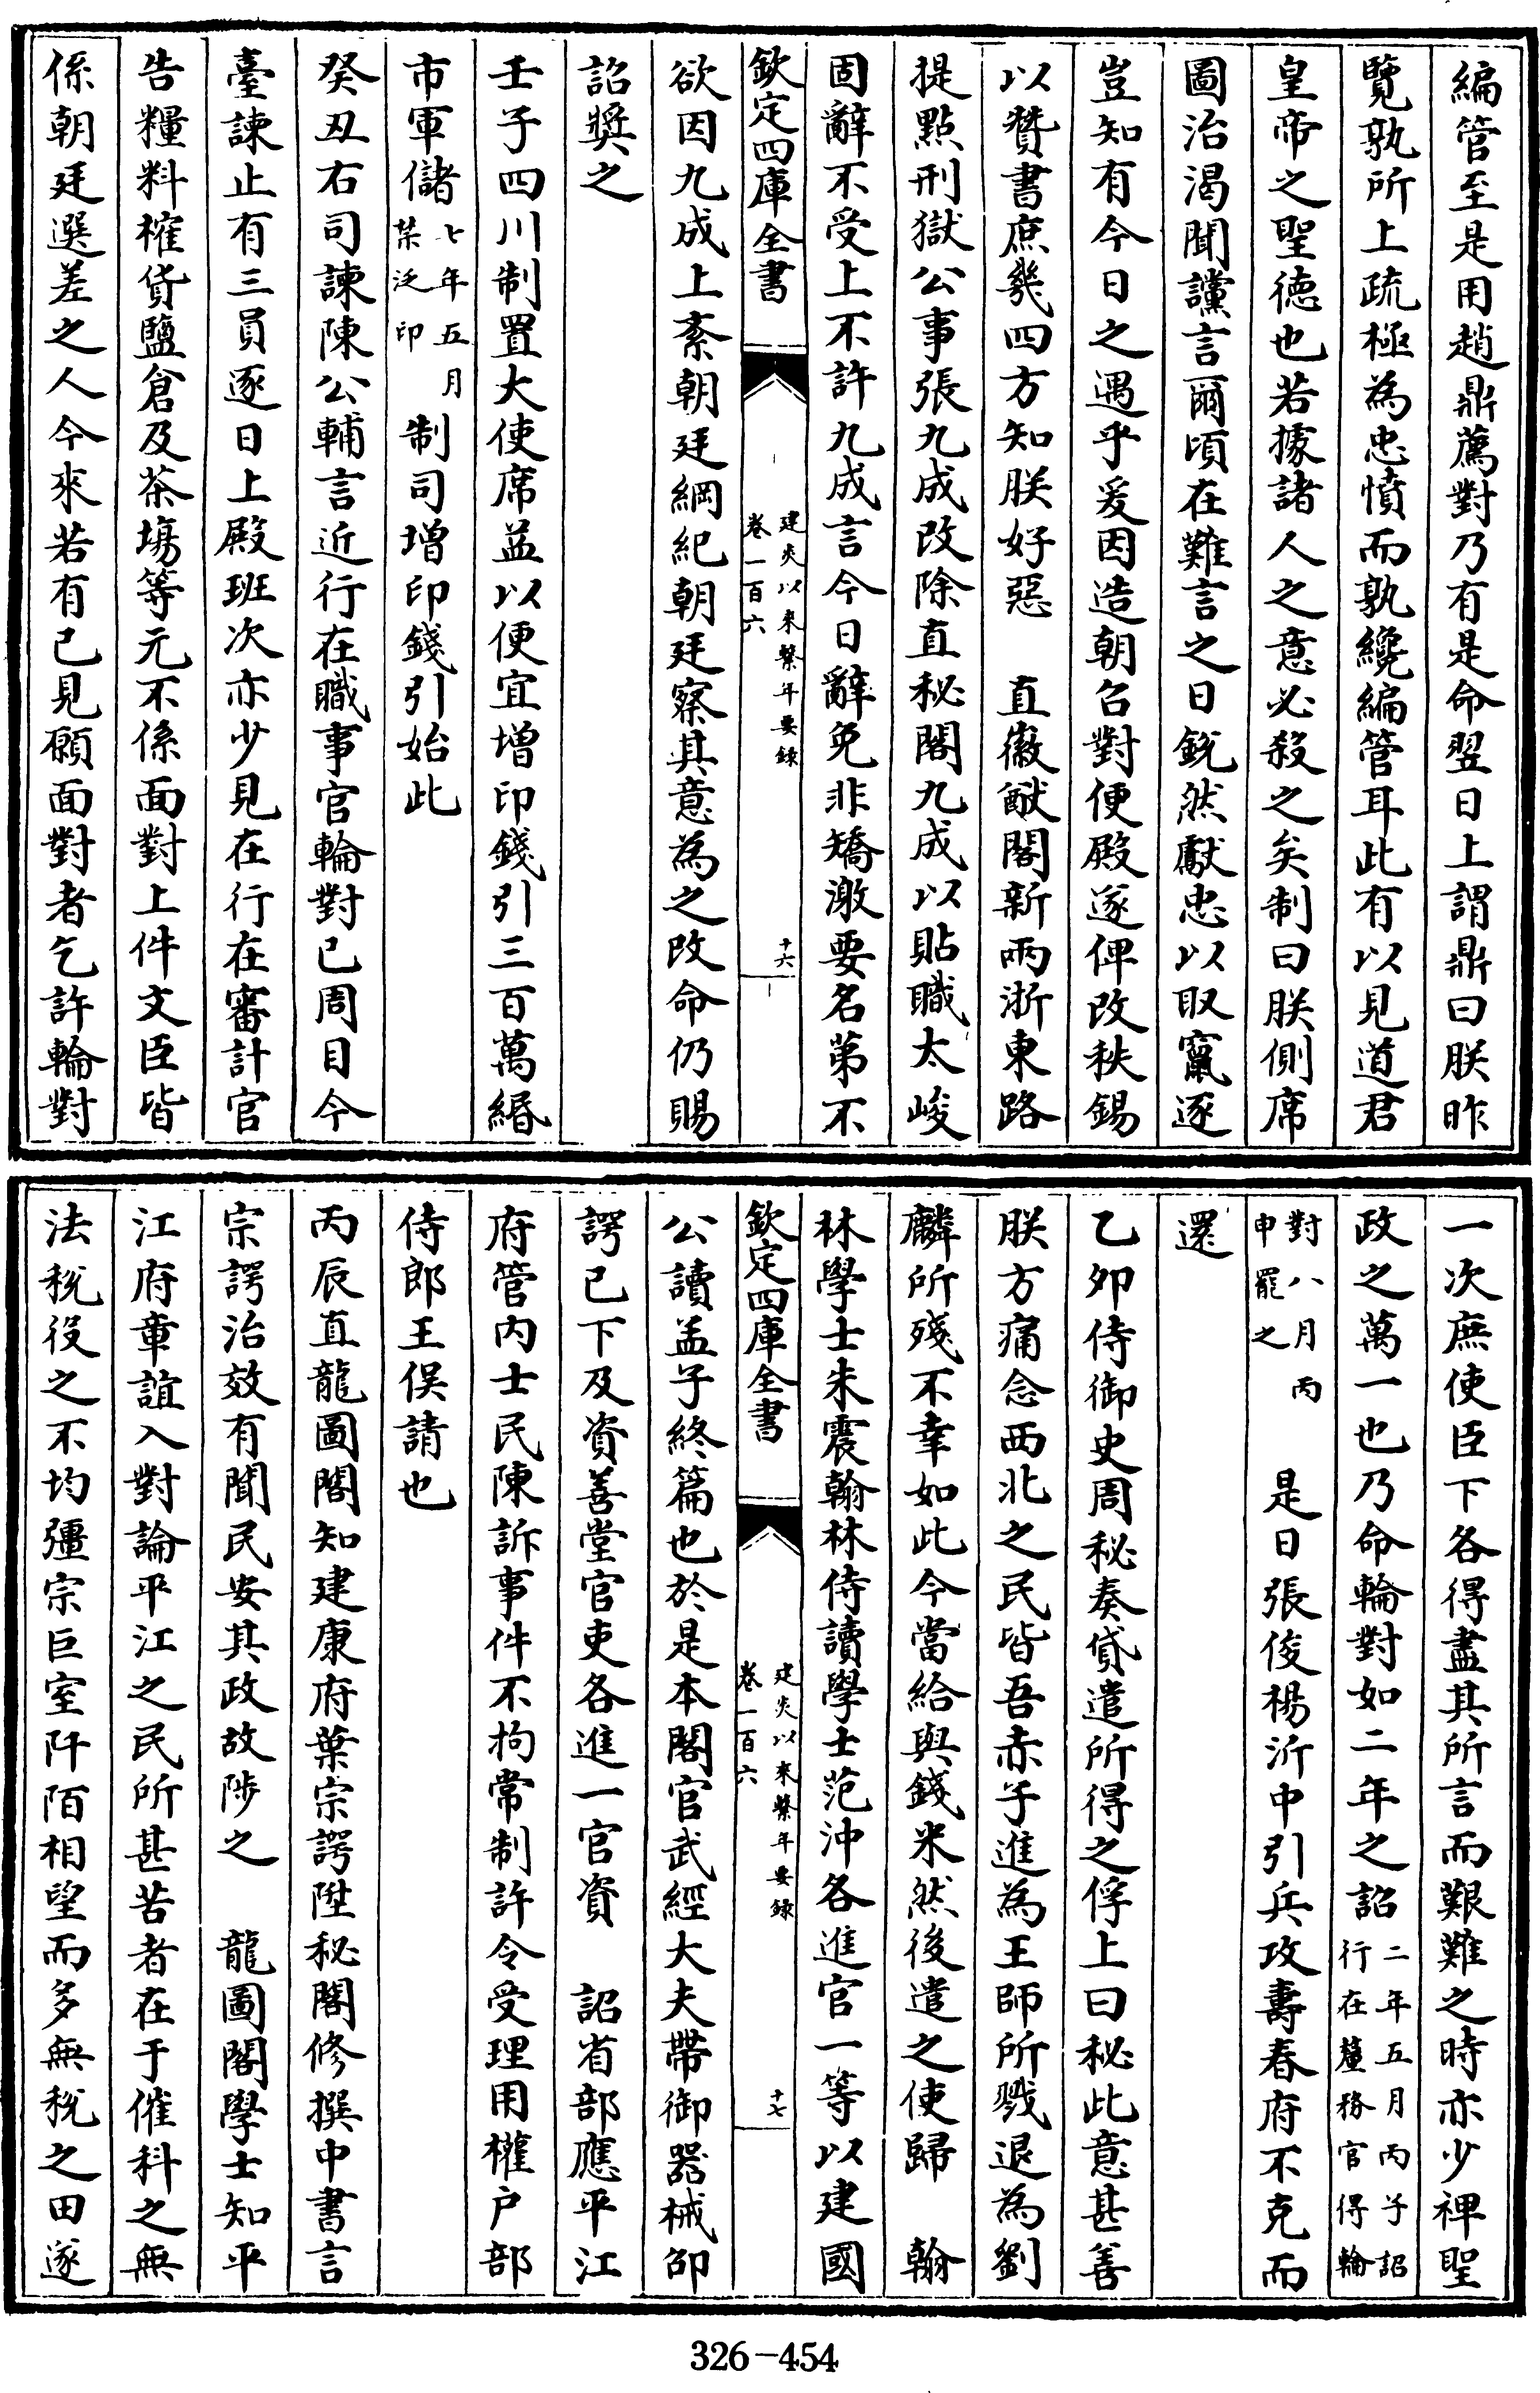 編管至是用趙鼎薦對乃有是命翌日上謂鼎曰朕昨
覽孰所上疏極為忠憤而孰纔編管耳此有以見道君
皇帝之聖徳也若據諸人之意必殺之矣制曰朕側席
圖治渴聞讜言爾頃在難言之日鋭然獻忠以取竄逐
豈知有今日之遇乎爰因造朝召對便殿遂俾改秩錫
以贊書庶幾四方知朕好惡　直徽猷閣新兩浙東路
提點刑獄公事張九成改除直秘閣九成以貼職太峻
固辭不受上不許九成言今日辭免非矯激要名第不
欽定四庫全書
建炎以來繫年要録
卷一百六
十六
欲因九成上紊朝廷綱紀朝廷察其意為之改命仍賜
詔奬之
壬子四川制置大使席益以便宜增印錢引三百萬緡
市軍儲
七年五月
禁泛印
制司增印錢引始此
癸丑右司諫陳公輔言近行在職事官輪對已周目今
臺諫止有三員逐日上殿班次亦少見在行在審計官
告糧料榷貨鹽倉及茶塲等元不係面對上件文臣皆
係朝廷選差之人今來若有已見願面對者乞許輪對
一次庶使臣下各得盡其所言而艱難之時亦少裨聖
政之萬一也乃命輪對如二年之詔
二年五月丙子詔
行在釐務官得輪
對八月丙
申罷之
是日張俊楊沂中引兵攻壽春府不克而
還
乙夘侍御史周秘奏貸遣所得之俘上曰秘此意甚善
朕方痛念西北之民皆吾赤子進為王師所戮退為劉
麟所殘不幸如此今當給與錢米然後遣之使歸　翰
林學士朱震翰林侍讀學士范沖各進官一等以建國
欽定四庫全書
建炎以來繫年要録
卷一百六
十七
公讀孟子終篇也於是本閣官武經大夫帶御器械邵
諤已下及資善堂官吏各進一官資　詔省部應平江
府管内士民陳訴事件不拘常制許令受理用權户部
侍郎王俁請也
丙辰直龍圖閣知建康府葉宗諤陞秘閣修撰中書言
宗諤治效有聞民安其政故陟之　龍圖閣學士知平
江府章誼入對論平江之民所甚苦者在于催科之無
法税役之不均彊宗巨室阡陌相望而多無税之田遂
326-454